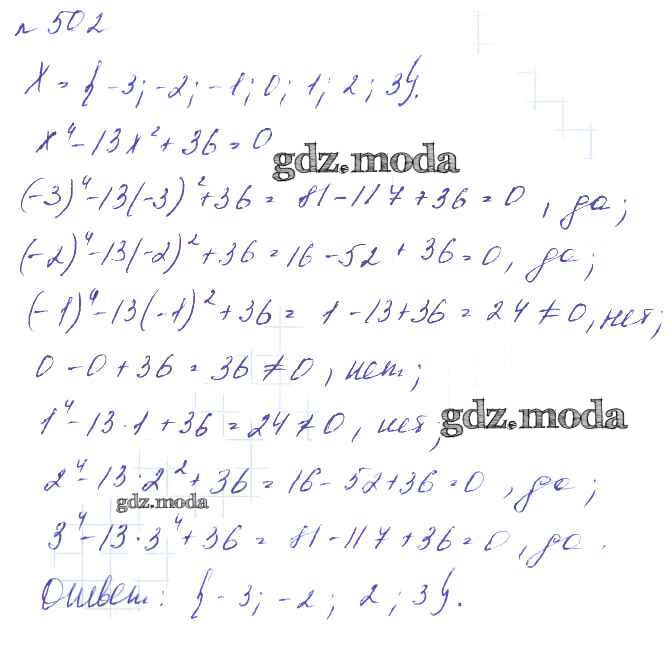 № 502
X = {-3; -2; -1; 0; 1; 2; 3}.
x⁴ - 13x² + 36 = 0
gdz.moda
(-3)⁴ - 13(-3)² + 36 = 81 - 117 + 36 = 0, да;
(-2)⁴ - 13(-2)² + 36 = 16 - 52 + 36 = 0, да;
(-1)⁴ - 13(-1)² + 36 = 1 - 13 + 36 = 24 ≠ 0, нет;
0 - 0 + 36 = 36 ≠ 0, нет;
1⁴ - 13·1 + 36 = 24 ≠ 0, нет;
gdz.moda
2⁴ - 13·2² + 36 = 16 - 52 + 36 = 0, да;
gdz.moda
3⁴ - 13·3⁴ + 36 = 81 - 117 + 36 = 0, да.
Ответ: {-3; -2; 2; 3}.